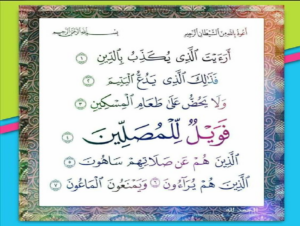 أعوذ بالله من الشيطان الرجيم بسم الله الرحمن الرحيم
أَرَءَيْتَ الَّذِي يُكَذِّبُ بِالدِّينِ ١
فَذَٰلِكَ الَّذِي يَدُعُّ الْيَتِيمَ ٢
وَلَا يَحُضُّ عَلَىٰ طَعَامِ الْمِسْكِينِ ٣
فَوَيْلٌ لِّلْمُصَلِّينَ ٤
الَّذِينَ هُمْ عَن صَلَاتِهِمْ سَاهُونَ ٥
الَّذِينَ هُمْ يُرَآءُونَ ٦ وَيَمْنَعُونَ الْمَاعُونَ ٧